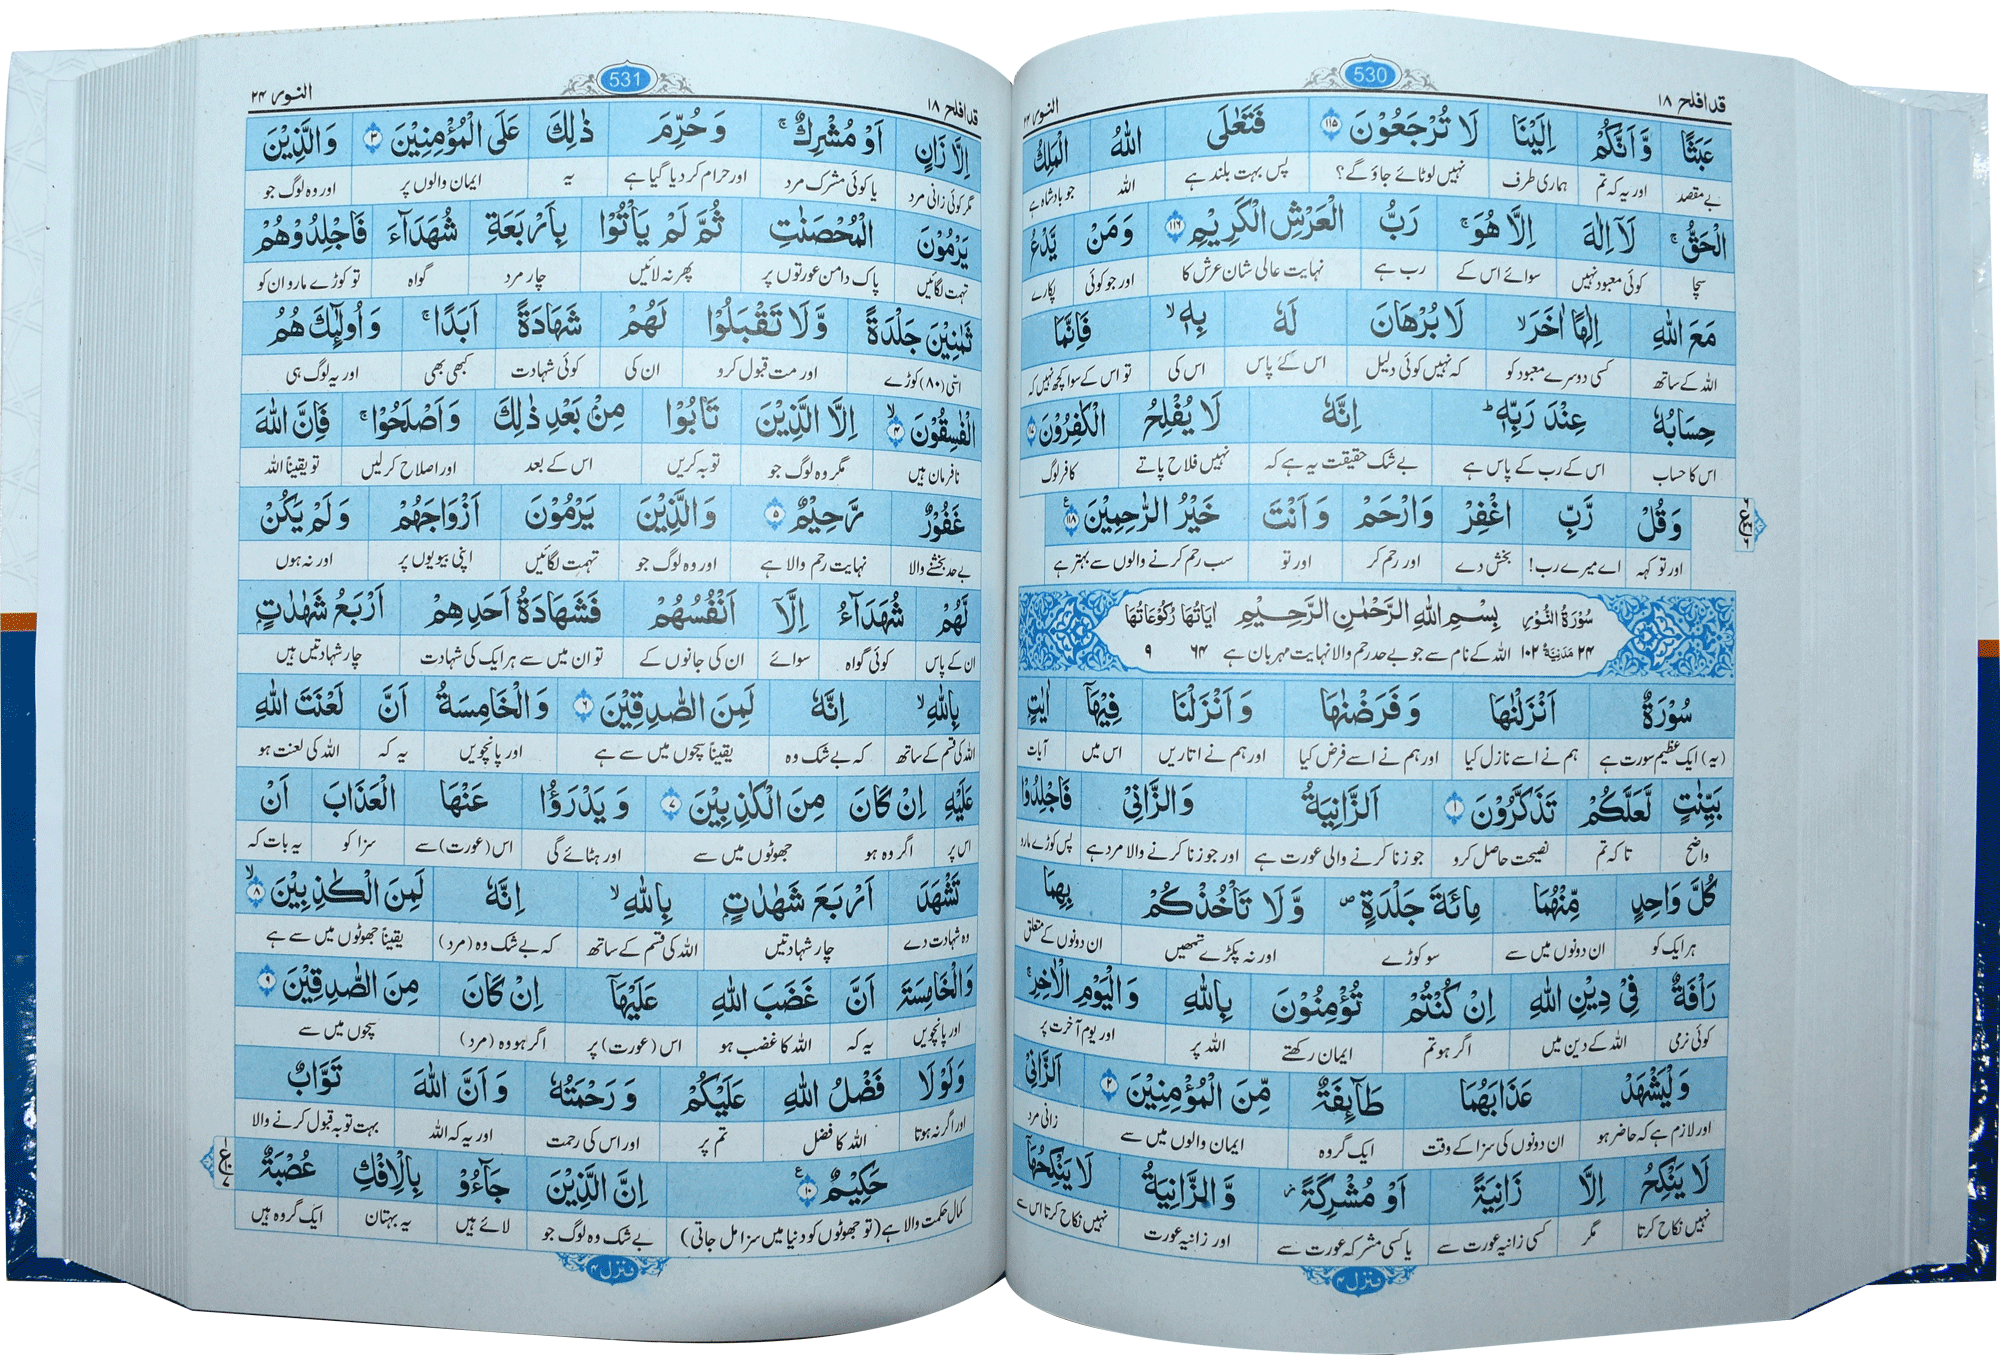 قد افلح ١٨
530
النور ٢٤
عَبَثًا وَّاَنَّكُمْ اِلَيْنَا لَا تُرْجَعُوْنَ ١١٥ فَتَعٰلَى اللّٰهُ الْمَلِكُ
بے مقصد اور یہ کہ تم ہماری طرف نہیں لوٹائے جاؤ گے؟ پس بہت بلند ہے اللہ جو بادشاہ ہے
الْحَقُّ ۚ لَاۤ اِلٰهَ اِلَّا هُوَ ۚ رَبُّ الْعَرْشِ الْكَرِيْمِ ١١٦ وَمَنْ يَّدْعُ
سچا کوئی معبود نہیں سوائے اس کے رب ہے نہایت عالی شان عرش کا اور جو کوئی پکارے
مَعَ اللّٰهِ اِلٰهًا اٰخَرَ ۙ لَا بُرْهَانَ لَهٗ بِهٖ ۙ فَاِنَّمَا
اللہ کے ساتھ کسی دوسرے معبود کو کہ نہیں کوئی دلیل اس کے پاس اس کی تو اس کے سوا کچھ نہیں کہ
حِسَابُهٗ عِنْدَ رَبِّهٖ ؕ اِنَّهٗ لَا يُفْلِحُ الْكٰفِرُوْنَ ١١٧
اس کا حساب اس کے رب کے پاس ہے بے شک حقیقت یہ ہے کہ نہیں فلاح پاتے کافر لوگ
وَقُلْ رَّبِّ اغْفِرْ وَارْحَمْ وَاَنْتَ خَيْرُ الرّٰحِمِيْنَ ١١٨
اور تو کہہ اے میرے رب! بخش دے اور رحم کر اور تو سب رحم کرنے والوں سے بہتر ہے
سُوْرَةُ النُّوْرِ بِسْمِ اللّٰهِ الرَّحْمٰنِ الرَّحِيْمِ اٰيَاتُهَا رُكُوْعَاتُهَا
٢٤ مَدَنِيَّةٌ ١٠٢ اللہ کے نام سے جو بے حد رحم والا نہایت مہربان ہے ٦٤ ٩
سُوْرَةٌ اَنْزَلْنٰهَا وَفَرَضْنٰهَا وَاَنْزَلْنَا فِيْهَاۤ اٰيٰتٍۭ
(یہ) ایک عظیم سورت ہے ہم نے اسے نازل کیا اور ہم نے اسے فرض کیا اور ہم نے اتاریں اس میں آیات
بَيِّنٰتٍ لَّعَلَّكُمْ تَذَكَّرُوْنَ ١ اَلزَّانِيَةُ وَالزَّانِيْ فَاجْلِدُوْا
واضح تاکہ تم نصیحت حاصل کرو جو زنا کرنے والی عورت ہے اور جو زنا کرنے والا مرد ہے پس کوڑے مارو
كُلَّ وَاحِدٍ مِّنْهُمَا مِائَةَ جَلْدَةٍ ۪ وَّلَا تَاْخُذْكُمْ بِهِمَا
ہر ایک کو ان دونوں میں سے سو کوڑے اور نہ پکڑے تمھیں ان دونوں کے متعلق
رَاْفَةٌ فِيْ دِيْنِ اللّٰهِ اِنْ كُنْتُمْ تُؤْمِنُوْنَ بِاللّٰهِ وَالْيَوْمِ الْاٰخِرِ ۚ
کوئی نرمی اللہ کے دین میں اگر ہو تم ایمان رکھتے اللہ پر اور یوم آخرت پر
وَلْيَشْهَدْ عَذَابَهُمَا طَآئِفَةٌ مِّنَ الْمُؤْمِنِيْنَ ٢ اَلزَّانِيْ
اور لازم ہے کہ حاضر ہو ان دونوں کی سزا کے وقت ایک گروہ ایمان والوں میں سے زانی مرد
لَا يَنْكِحُ اِلَّا زَانِيَةً اَوْ مُشْرِكَةً ؗ وَّالزَّانِيَةُ لَا يَنْكِحُهَاۤ
نہیں نکاح کرتا مگر کسی زانیہ عورت سے یا کسی مشرکہ عورت سے اور زانیہ عورت نہیں نکاح کرتا اس سے
منزل ۴
قد افلح ١٨
531
النور ٢٤
اِلَّا زَانٍ اَوْ مُشْرِكٌ ۚ وَحُرِّمَ ذٰلِكَ عَلَى الْمُؤْمِنِيْنَ ٣ وَالَّذِيْنَ
مگر کوئی زانی مرد یا کوئی مشرک مرد اور حرام کر دیا گیا ہے یہ ایمان والوں پر اور وہ لوگ جو
يَرْمُوْنَ الْمُحْصَنٰتِ ثُمَّ لَمْ يَاْتُوْا بِاَرْبَعَةِ شُهَدَآءَ فَاجْلِدُوْهُمْ
تہمت لگائیں پاک دامن عورتوں پر پھر نہ لائیں چار مرد گواہ تو کوڑے مارو ان کو
ثَمٰنِيْنَ جَلْدَةً وَّلَا تَقْبَلُوْا لَهُمْ شَهَادَةً اَبَدًا ۚ وَاُولٰٓئِكَ هُمُ
اسّی (۸۰) کوڑے اور مت قبول کرو ان کی کوئی شہادت کبھی بھی اور یہ لوگ ہی
الْفٰسِقُوْنَ ٤ ۙ اِلَّا الَّذِيْنَ تَابُوْا مِنْۢ بَعْدِ ذٰلِكَ وَاَصْلَحُوْا ۚ فَاِنَّ اللّٰهَ
نافرمان ہیں مگر وہ لوگ جو توبہ کریں اس کے بعد اور اصلاح کر لیں تو یقیناً اللہ
غَفُوْرٌ رَّحِيْمٌ ٥ وَالَّذِيْنَ يَرْمُوْنَ اَزْوَاجَهُمْ وَلَمْ يَكُنْ
بے حد بخشنے والا نہایت رحم والا ہے اور وہ لوگ جو تہمت لگائیں اپنی بیویوں پر اور نہ ہوں
لَّهُمْ شُهَدَآءُ اِلَّاۤ اَنْفُسُهُمْ فَشَهَادَةُ اَحَدِهِمْ اَرْبَعُ شَهٰدٰتٍۭ
ان کے پاس کوئی گواہ سوائے ان کی جانوں کے تو ان میں سے ہر ایک کی شہادت چار شہادتیں ہیں
بِاللّٰهِ ۙ اِنَّهٗ لَمِنَ الصّٰدِقِيْنَ ٦ وَالْخَامِسَةُ اَنَّ لَعْنَتَ اللّٰهِ
اللہ کی قسم کے ساتھ کہ بے شک وہ یقیناً سچوں میں سے ہے اور پانچویں یہ کہ اللہ کی لعنت ہو
عَلَيْهِ اِنْ كَانَ مِنَ الْكٰذِبِيْنَ ٧ وَيَدْرَؤُا عَنْهَا الْعَذَابَ اَنْ
اس پر اگر وہ ہو جھوٹوں میں سے اور ہٹائے گی اس (عورت) سے سزا کو یہ بات کہ
تَشْهَدَ اَرْبَعَ شَهٰدٰتٍۭ بِاللّٰهِ ۙ اِنَّهٗ لَمِنَ الْكٰذِبِيْنَ ٨ ۙ
وہ شہادت دے چار شہادتیں اللہ کی قسم کے ساتھ کہ بے شک وہ (مرد) یقیناً جھوٹوں میں سے ہے
وَالْخَامِسَةَ اَنَّ غَضَبَ اللّٰهِ عَلَيْهَاۤ اِنْ كَانَ مِنَ الصّٰدِقِيْنَ ٩
اور پانچویں یہ کہ اللہ کا غضب ہو اس (عورت) پر اگر ہو وہ (مرد) سچوں میں سے
وَلَوْلَا فَضْلُ اللّٰهِ عَلَيْكُمْ وَرَحْمَتُهٗ وَاَنَّ اللّٰهَ تَوَّابٌ
اور اگر نہ ہوتا اللہ کا فضل تم پر اور اس کی رحمت اور یہ کہ اللہ بہت توبہ قبول کرنے والا
حَكِيْمٌ ١٠ اِنَّ الَّذِيْنَ جَآءُوْ بِالْاِفْكِ عُصْبَةٌ
کمال حکمت والا ہے (تو جھوٹوں کو دنیا میں سزا مل جاتی) بے شک وہ لوگ جو لائے ہیں یہ بہتان ایک گروہ ہیں
منزل ۴